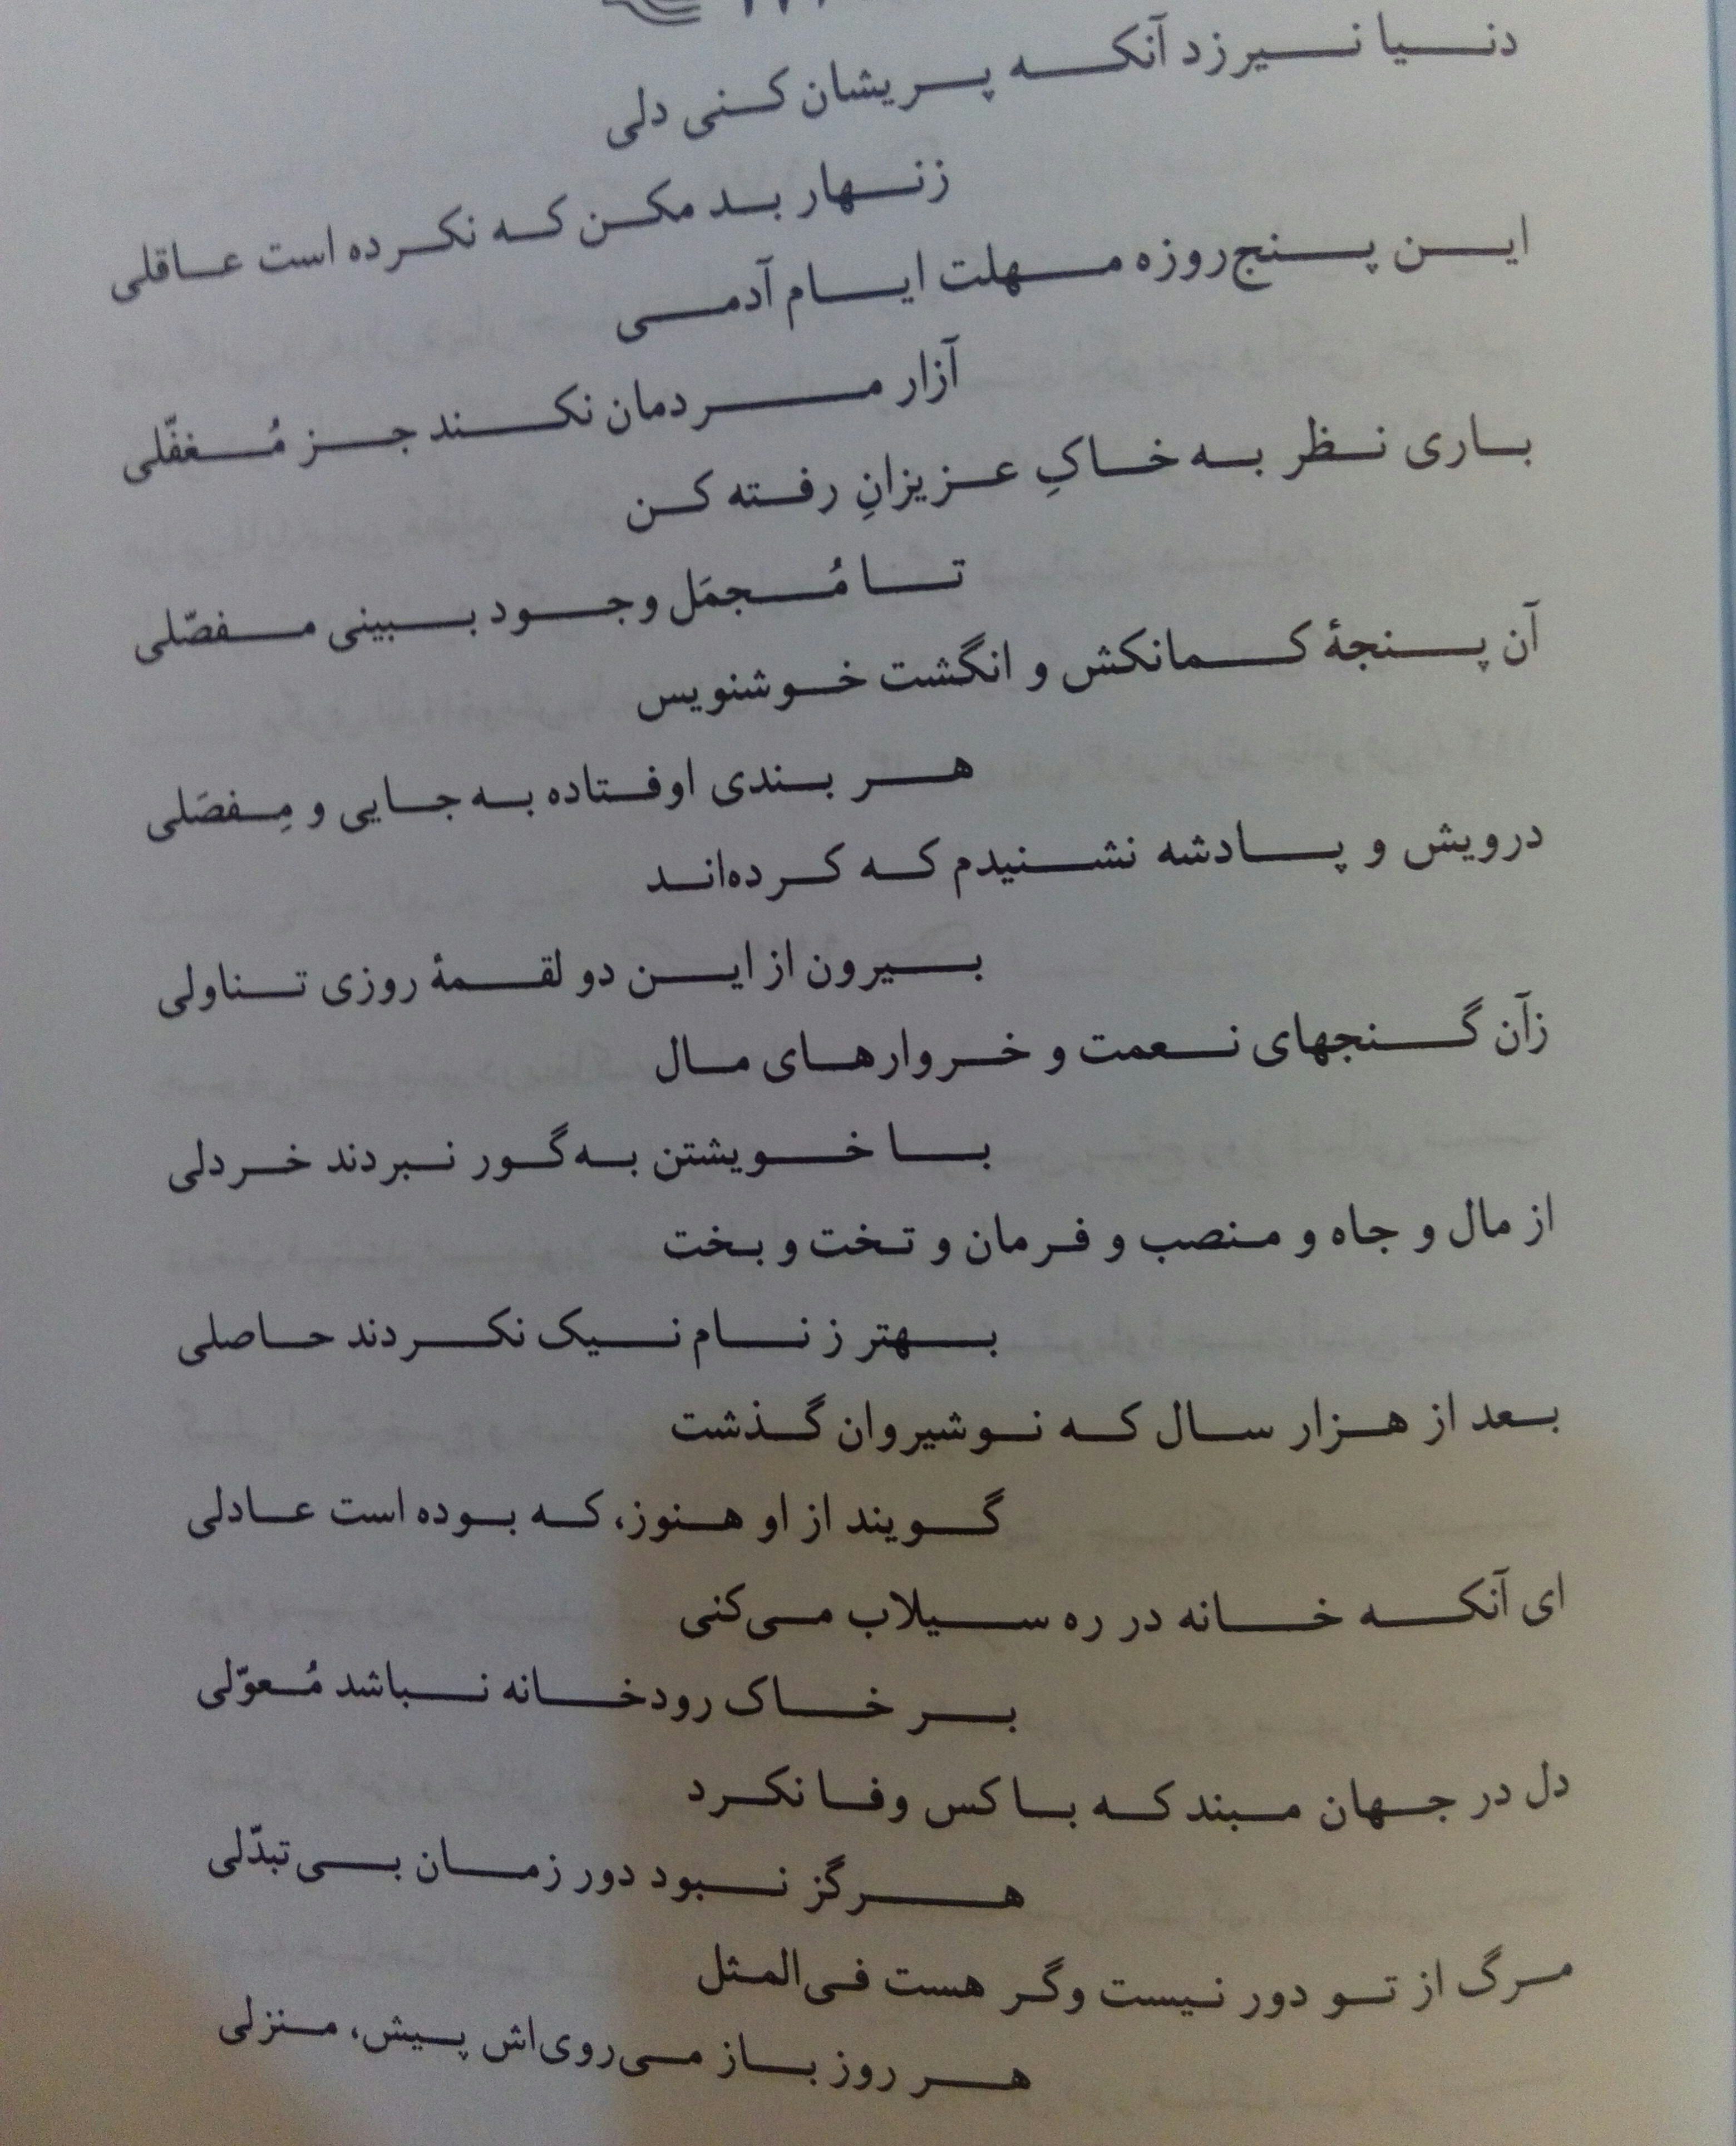 دنیا نیرزد آنکه پریشان کنی دلی
زنهار بد مکن که نکرده است عاقلی
این پنج‌روزه مهلت ایام آدمی
آزار مردمان نکند جز مُغفّلی
باری نظر به خاکِ عزیزانِ رفته کن
تا مُجمَل وجود ببینی مفصّلی
آن پنجهٔ کمانکش و انگشت خوشنویس
هر بندی اوفتاده به جایی و مِفصَلی
درویش و پادشه نشنیدم که کرده‌اند
بیرون از این دو لقمهٔ روزی تناولی
زآن گنجهای نعمت و خروارهای مال
با خویشتن به گور نبردند خردلی
از مال و جاه و منصب و فرمان و تخت و بخت
بهتر ز نام نیک نکردند حاصلی
بعد از هزار سال که نوشیروان گذشت
گویند از او هنوز، که بوده است عادلی
ای آنکه خانه در ره سیلاب می‌کنی
بر خاک رودخانه نباشد مُعوّلی
دل در جهان مبند که با کس وفا نکرد
هرگز نبود دور زمان بی‌تبدّلی
مرگ از تو دور نیست وگر هست فی‌المثل
هر روز باز می‌روی‌اش پیش، منزلی